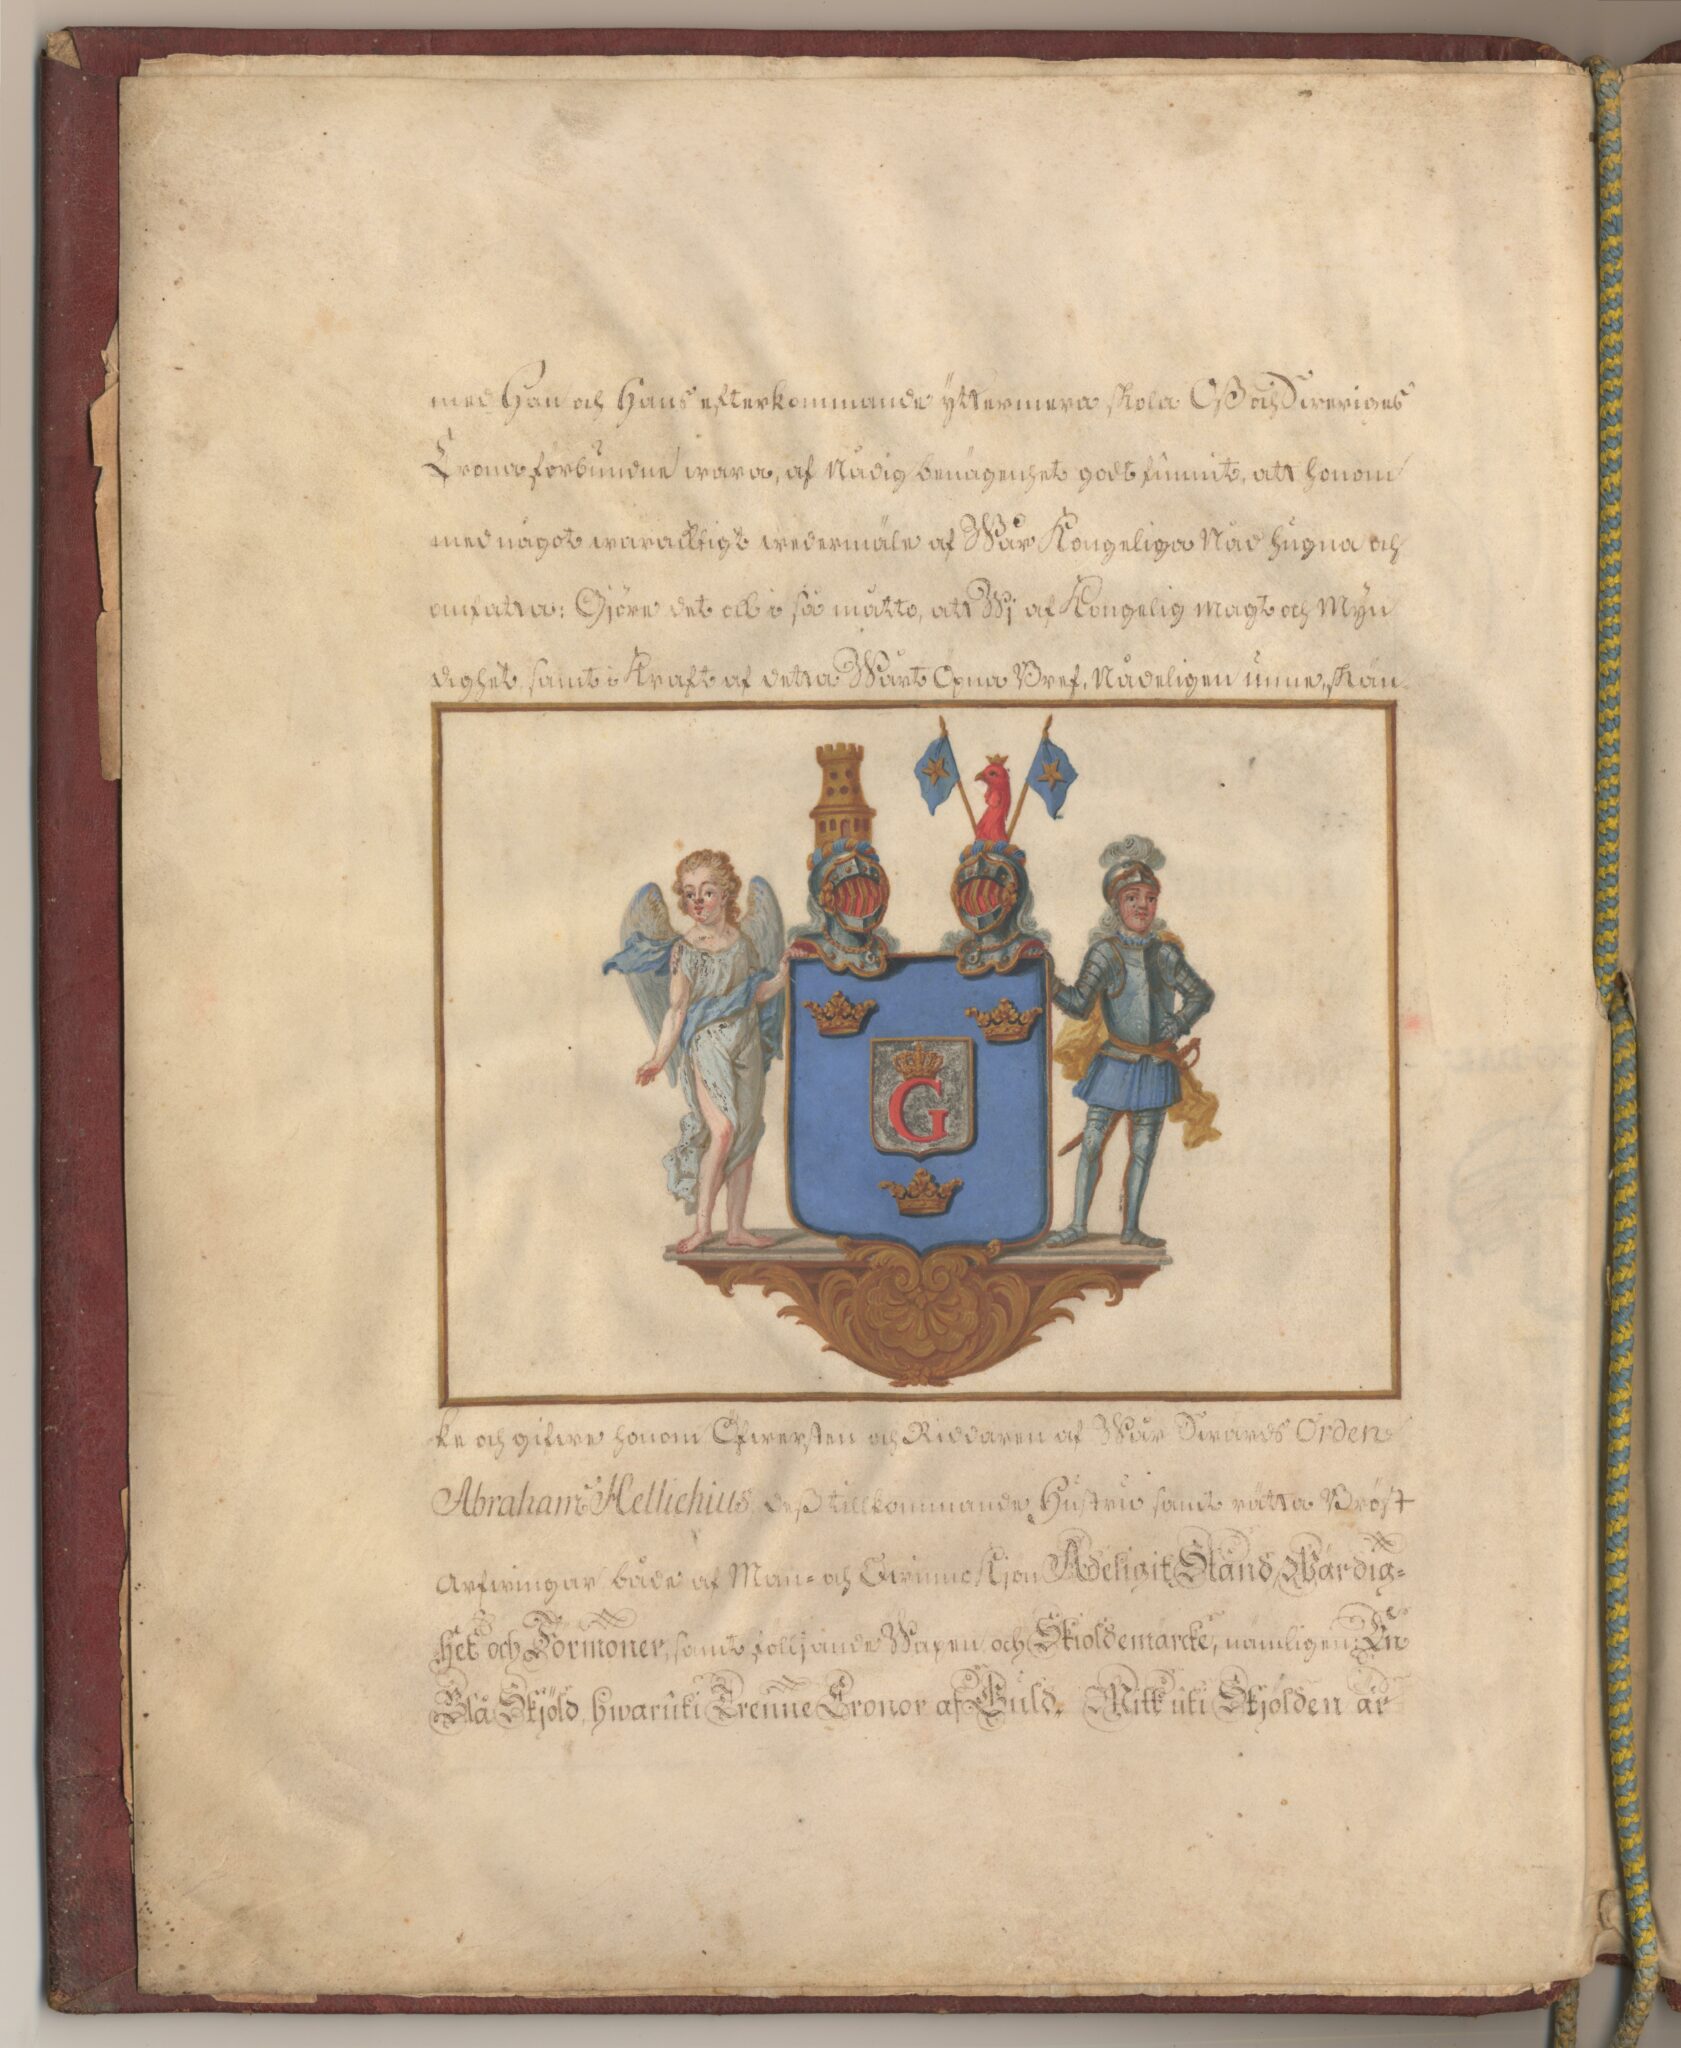 med Han och Hans efterkommande ÿttermera skola Oß och Sweriges
Crona förbundne wara, af Nådig benägenhet godt funnit, att honom
med något waracktigt wedermäle af Wår Kongeliga Nåd hugna och
omfatta: Gjöre det ock i så måtto, att Wj af Kongelig Magt och Myn
dighet samt i Kraft af detta Wårt Öpna Bref, Nådeligen unne, skän
G
ke och gifwe honom Öfwersten och Riddaren af Wår Swärds Orden
Abraham Hellichius, deß tillkommande Hustru samt rätta Bröst
Arfwingar, både af Man- och Qwinno Kjön Adeligit Stånd, Wärdig-
het och Förmoner, samt följjande Wapen och Skioldemärcke, nämligen: En
Blå Skjöld, hwaruti Trenne Cronor af Guld. Mitt uti Skjölden är